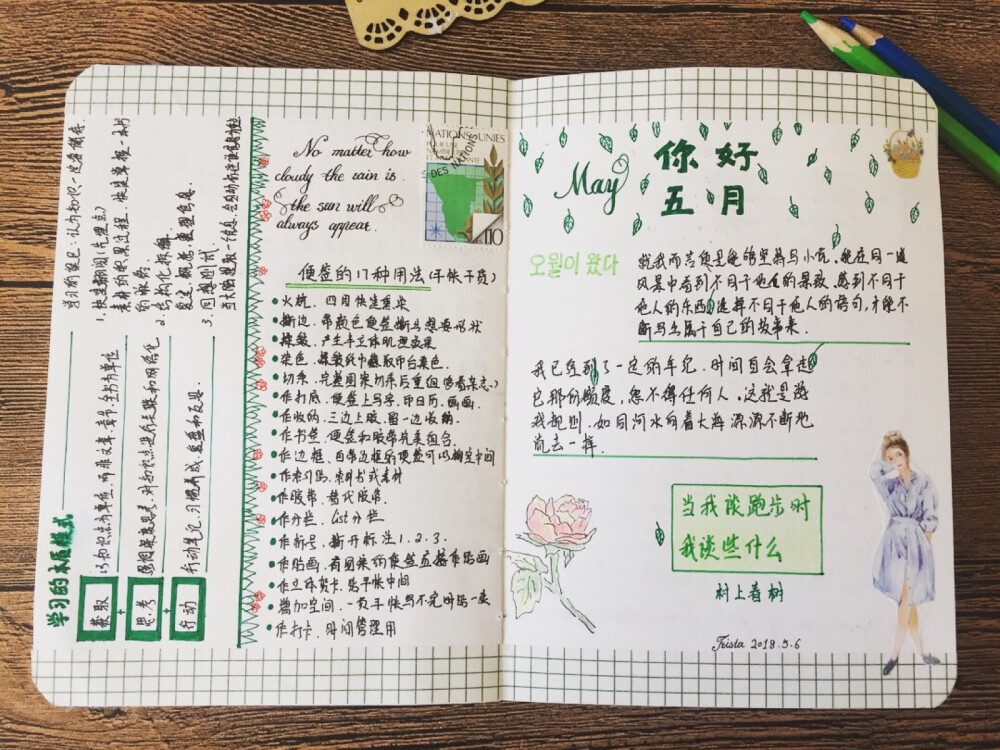 学习的本质模式
获取
以知识点为单位，而非文章、章节、全书为单位
+
思考
对知识点进行关联和网络化
+
行动
行动笔记，习惯养成，复盘和反思
1. 快速翻阅
素材的积累过程，快速掌握一本书
的
2. 结构化拆解
3.
No matter how
cloudy the rain is.
the sun will
always appear.
NATIONS UNIES
S DES NATIONS
110
便签的17种用法(手帐干货)
火炕、四月快速熏染
撕边、带颜色便签撕与想要形状
揉皱、产生半立体肌理效果
染色、揉皱纸巾蘸取印台着色.
切条、完整图案切条后重组
作打底、便签上写字、印日历、画画.
作收纳、三边上胶、留一边收纳.
作书签、便签和胶带抗柔组合.
作边框、自带边框的便签可以掏空中间
作索引贴、索引书式素材
作胶带、替代胶带.
作分栏、list分栏
作标号、撕开标注1.2.3.
作贴画、有图案的便签直接作贴画
作立体贺卡、贴手帐中间
增加空间、一页手帐写不完时贴一张
作打卡、时间管理用
May
你好
五月
오월이 왔다
就我而言便是能够坚持写小说，能在同一道
风景中看到不同于他人的景致，感到不同于
他人的东西，选择不同于他人的语句，才能不
断写出属于自己的故事来.
我已经到了一定的年纪. 时间自会拿走
它那份额度，怨不得任何人。这就是游
戏规则. 如同河水向着大海源源不断地
流去一样.
当我谈跑步时
我谈些什么
村上春树
Trista 2018.5.6